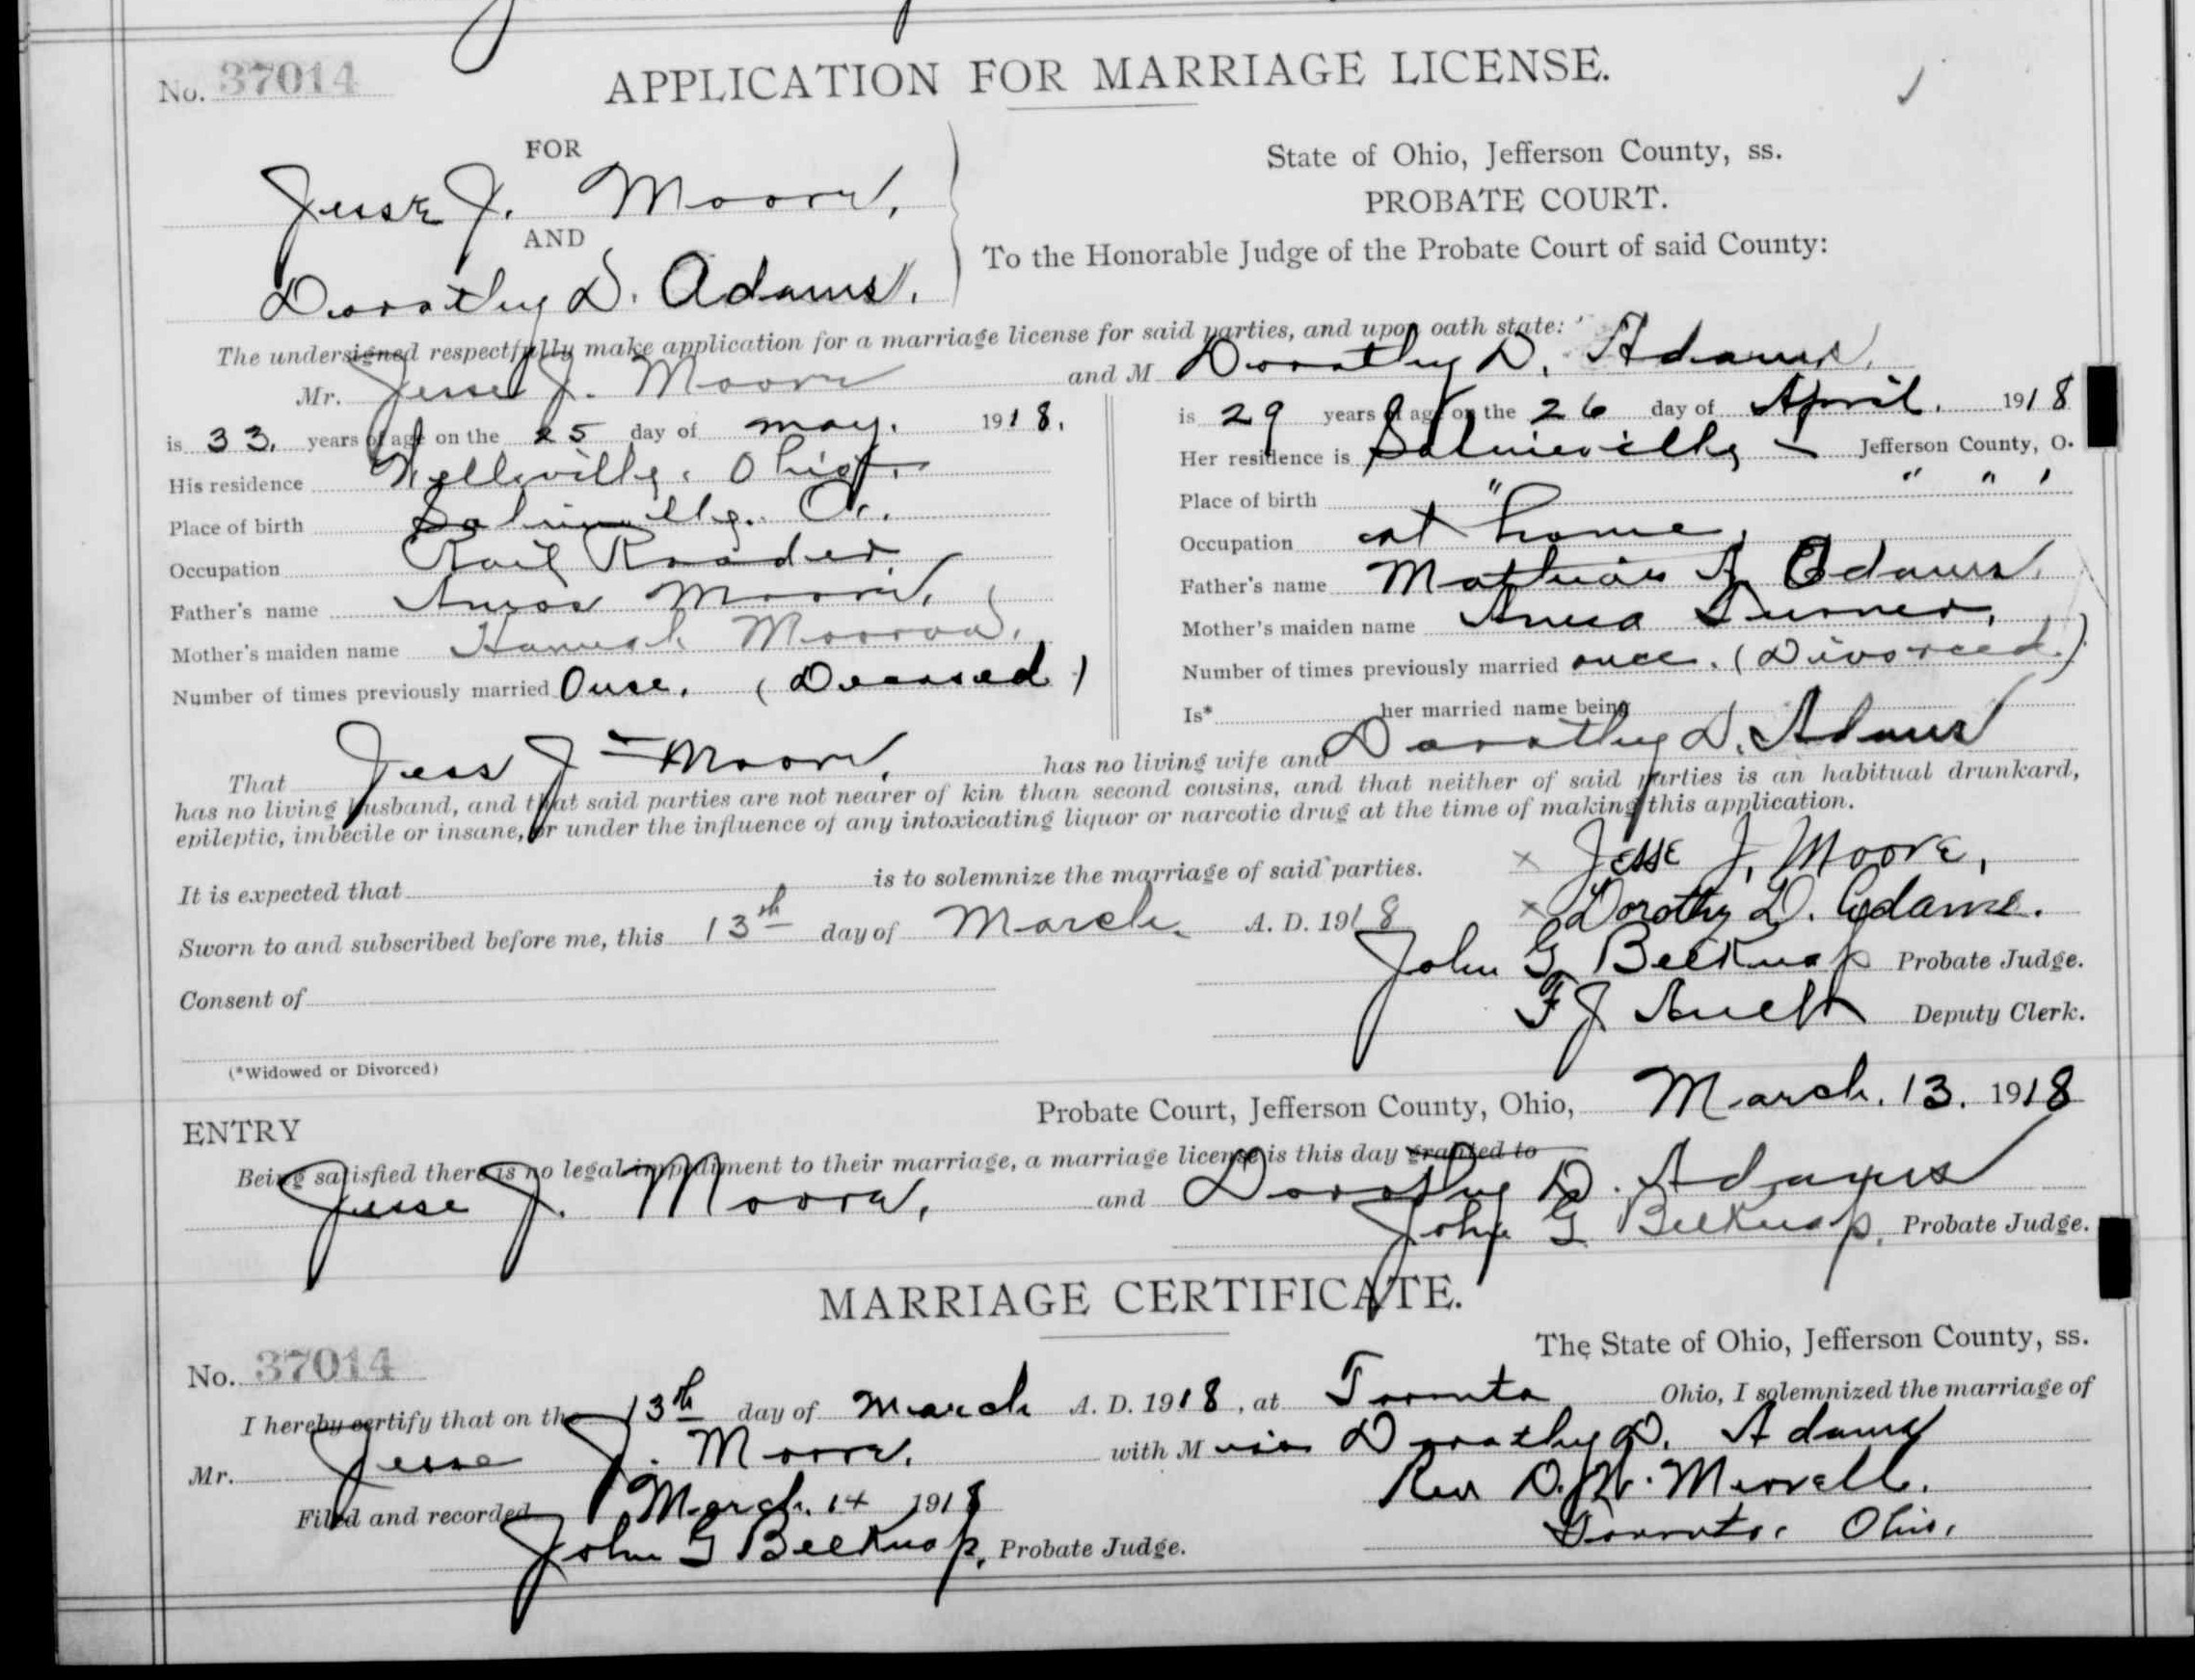 No. 37014
APPLICATION FOR MARRIAGE LICENSE.
FOR
Jesse J. Moore,
AND
Dorothy D. Adams.
State of Ohio, Jefferson County, ss.
PROBATE COURT.
To the Honorable Judge of the Probate Court of said County:
The undersigned respectfully make application for a marriage license for said parties, and upon oath state:
Mr. Jesse J. Moore and M Dorothy D. Adams,
is 33. years of age on the 25 day of May. 1918.
His residence Wellsville, Ohio.
Place of birth Salineville, O.
Occupation Rail Roader
Father's name Amos Moore,
Mother's maiden name Hannah
Number of times previously married Once. (Deceased)
is 29 years of age on the 26 day of April. 1918
Her residence is Salineville, Jefferson County, O.
Place of birth " " " '
Occupation at home,
Father's name Adams.
Mother's maiden name Anna Turner,
Number of times previously married once. (Divorced.)
Is* her married name being
That Jess J Moore, has no living wife and Dorothy D. Adams
has no living husband, and that said parties are not nearer of kin than second cousins, and that neither of said parties is an habitual drunkard,
epileptic, imbecile or insane, or under the influence of any intoxicating liquor or narcotic drug at the time of making this application.
x Jesse J, Moore,
It is expected that is to solemnize the marriage of said parties.
x Dorothy D. Adams.
Sworn to and subscribed before me, this 13th day of March. A. D. 1918
John G Belknap Probate Judge.
Consent of
F J Deputy Clerk.
(*Widowed or Divorced)
ENTRY
Probate Court, Jefferson County, Ohio, March. 13. 1918
Being satisfied there is no legal impediment to their marriage, a marriage license is this day granted to
Jesse J. Moore, and Dorothy D. Adams
John G Belknap, Probate Judge.
MARRIAGE CERTIFICATE.
No. 37014
The State of Ohio, Jefferson County, ss.
I hereby certify that on the 13th day of March A. D. 1918, at Toronto Ohio, I solemnized the marriage of
Mr. Jesse J. Moore. with Miss Dorothy D. Adams
Filed and recorded March. 14 1918
Rev D. W.
John G Belknap, Probate Judge.
Toronto, Ohio,